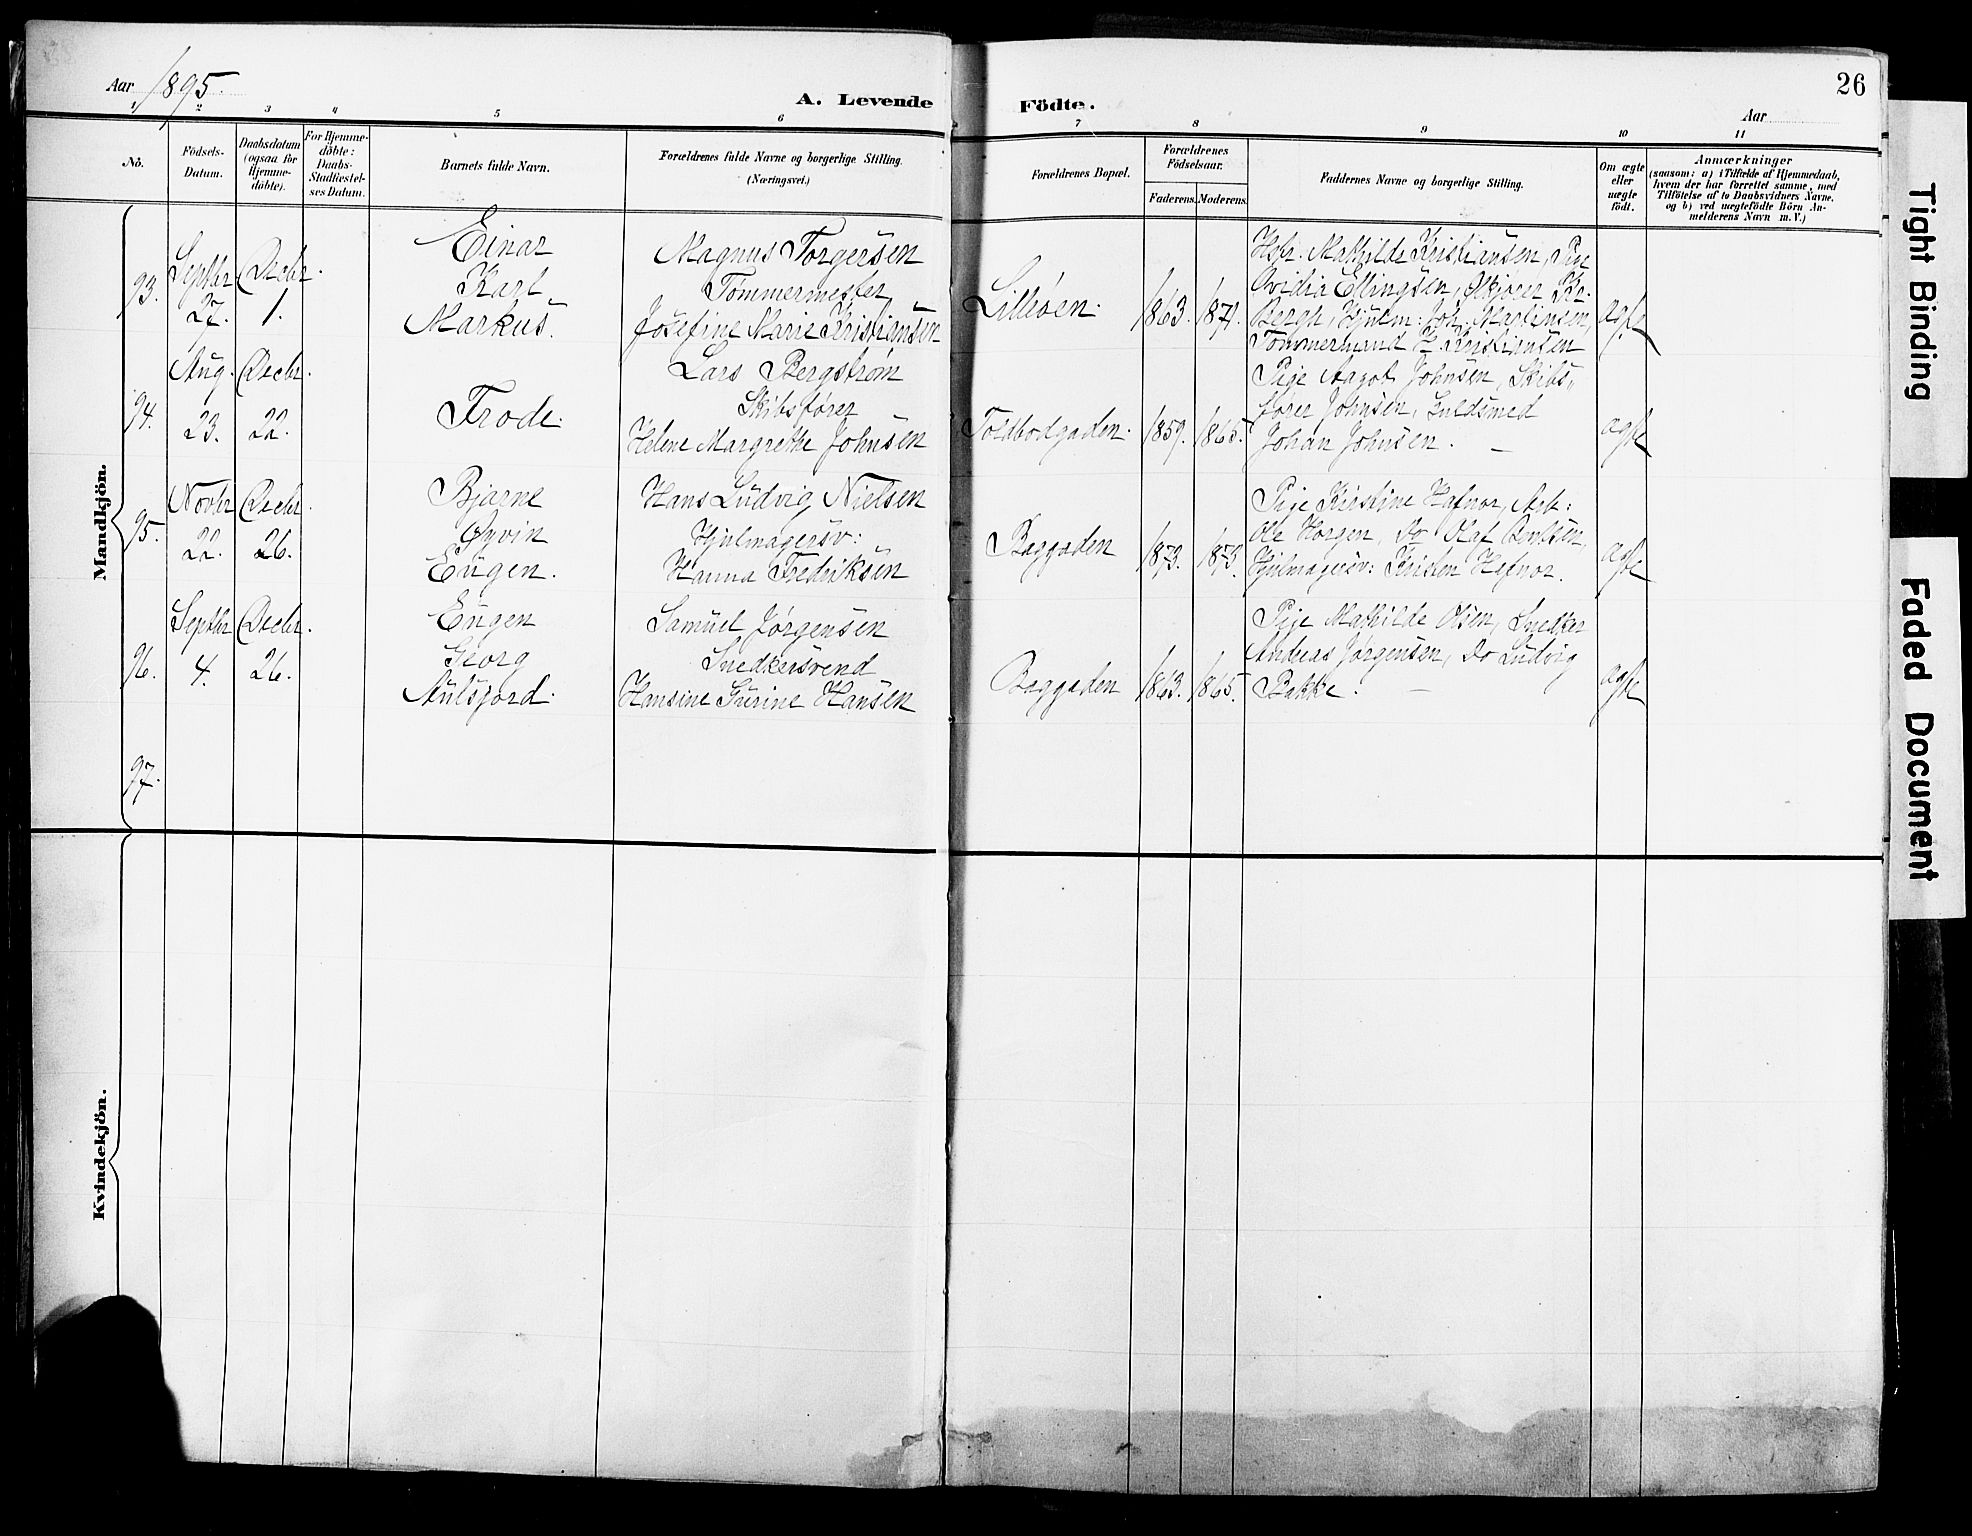 Aar 1895.
A. Levende
Födte.
26
Aar
1 2 3 4 5 6
7 8 9 10 11
No.
Födsels-
Datum.
Daabsdatum
(ogsaa for
Hjemme-
döbte).
For Hjemme-
döbte:
Daabs-
Stadfæstel-
ses Datum.
Barnets fulde Navn.
Forældrenes fulde Navne og borgerlige Stilling.
(Næringsvei.)
Forældrenes Bopæl.
Forældrenes
Födselsaar.
Faderens.
Moderens.
Faddernes Navne og borgerlige Stilling.
Om ægte
eller
uægte
födt.
Anmærkninger
(saasom: a) i Tilfælde af Hjemmedaab,
hvem der har forrettet samme, med
Tilföielse af to Daabsvidners Navne.
og b) ved uægtefödte Börn An-
melderens Navn m. V.)
Mandkjön.
93.
Septbr
27.
Decbr.
1.
Einar
Karl
Markus.
Magnus Torgersen
Tømmermester
Josefine Marie Kristiansen
Lilleøen.
1863.
1871.
Hsfr. Mathilde Kristiansen, Pige
Ovidia Ellingsen, Ølkjører Kr.
Bergh, Hjulm: Joh. Martinsen,
Tømmermand H. Kristiansen
ægte
94.
Aug.
23.
Decbr.
22.
Frode.
Lars Bergstrøm
Skibsfører
Helene Margrethe Johnsen
Toldbodgaden.
1859.
1865.
Pige Aagot Johnsen, Skibs„
fører Johnsen, Guldsmed
Johan Johnsen. —
ægte
95.
Novbr
22.
Decbr.
26.
Bjarne
Øyvin
Eugen.
Hans Ludvig Nielsen
Hjulmagersv:
Hanna Fredriksen
Baggaden
1873.
1873.
Pige Kirstine Hafnor, Arb:
Ole Horgen, Do Olaf Berntsen,
Hjulmagersv: Kristen Hafnor.
ægte
96.
Septbr
4.
Decbr.
26.
Eugen
Georg
Aulsjord.
Samuel Jørgensen
Snedkersvend
Hansine Gurine Hansen
Baggaden
1863.
1865.
Pige Mathilde Olsen, Snedker
Andreas Jørgensen, Do Ludvig
Bakke. —
ægte
97.
Kvindekjön.
Tight Binding
Faded Document